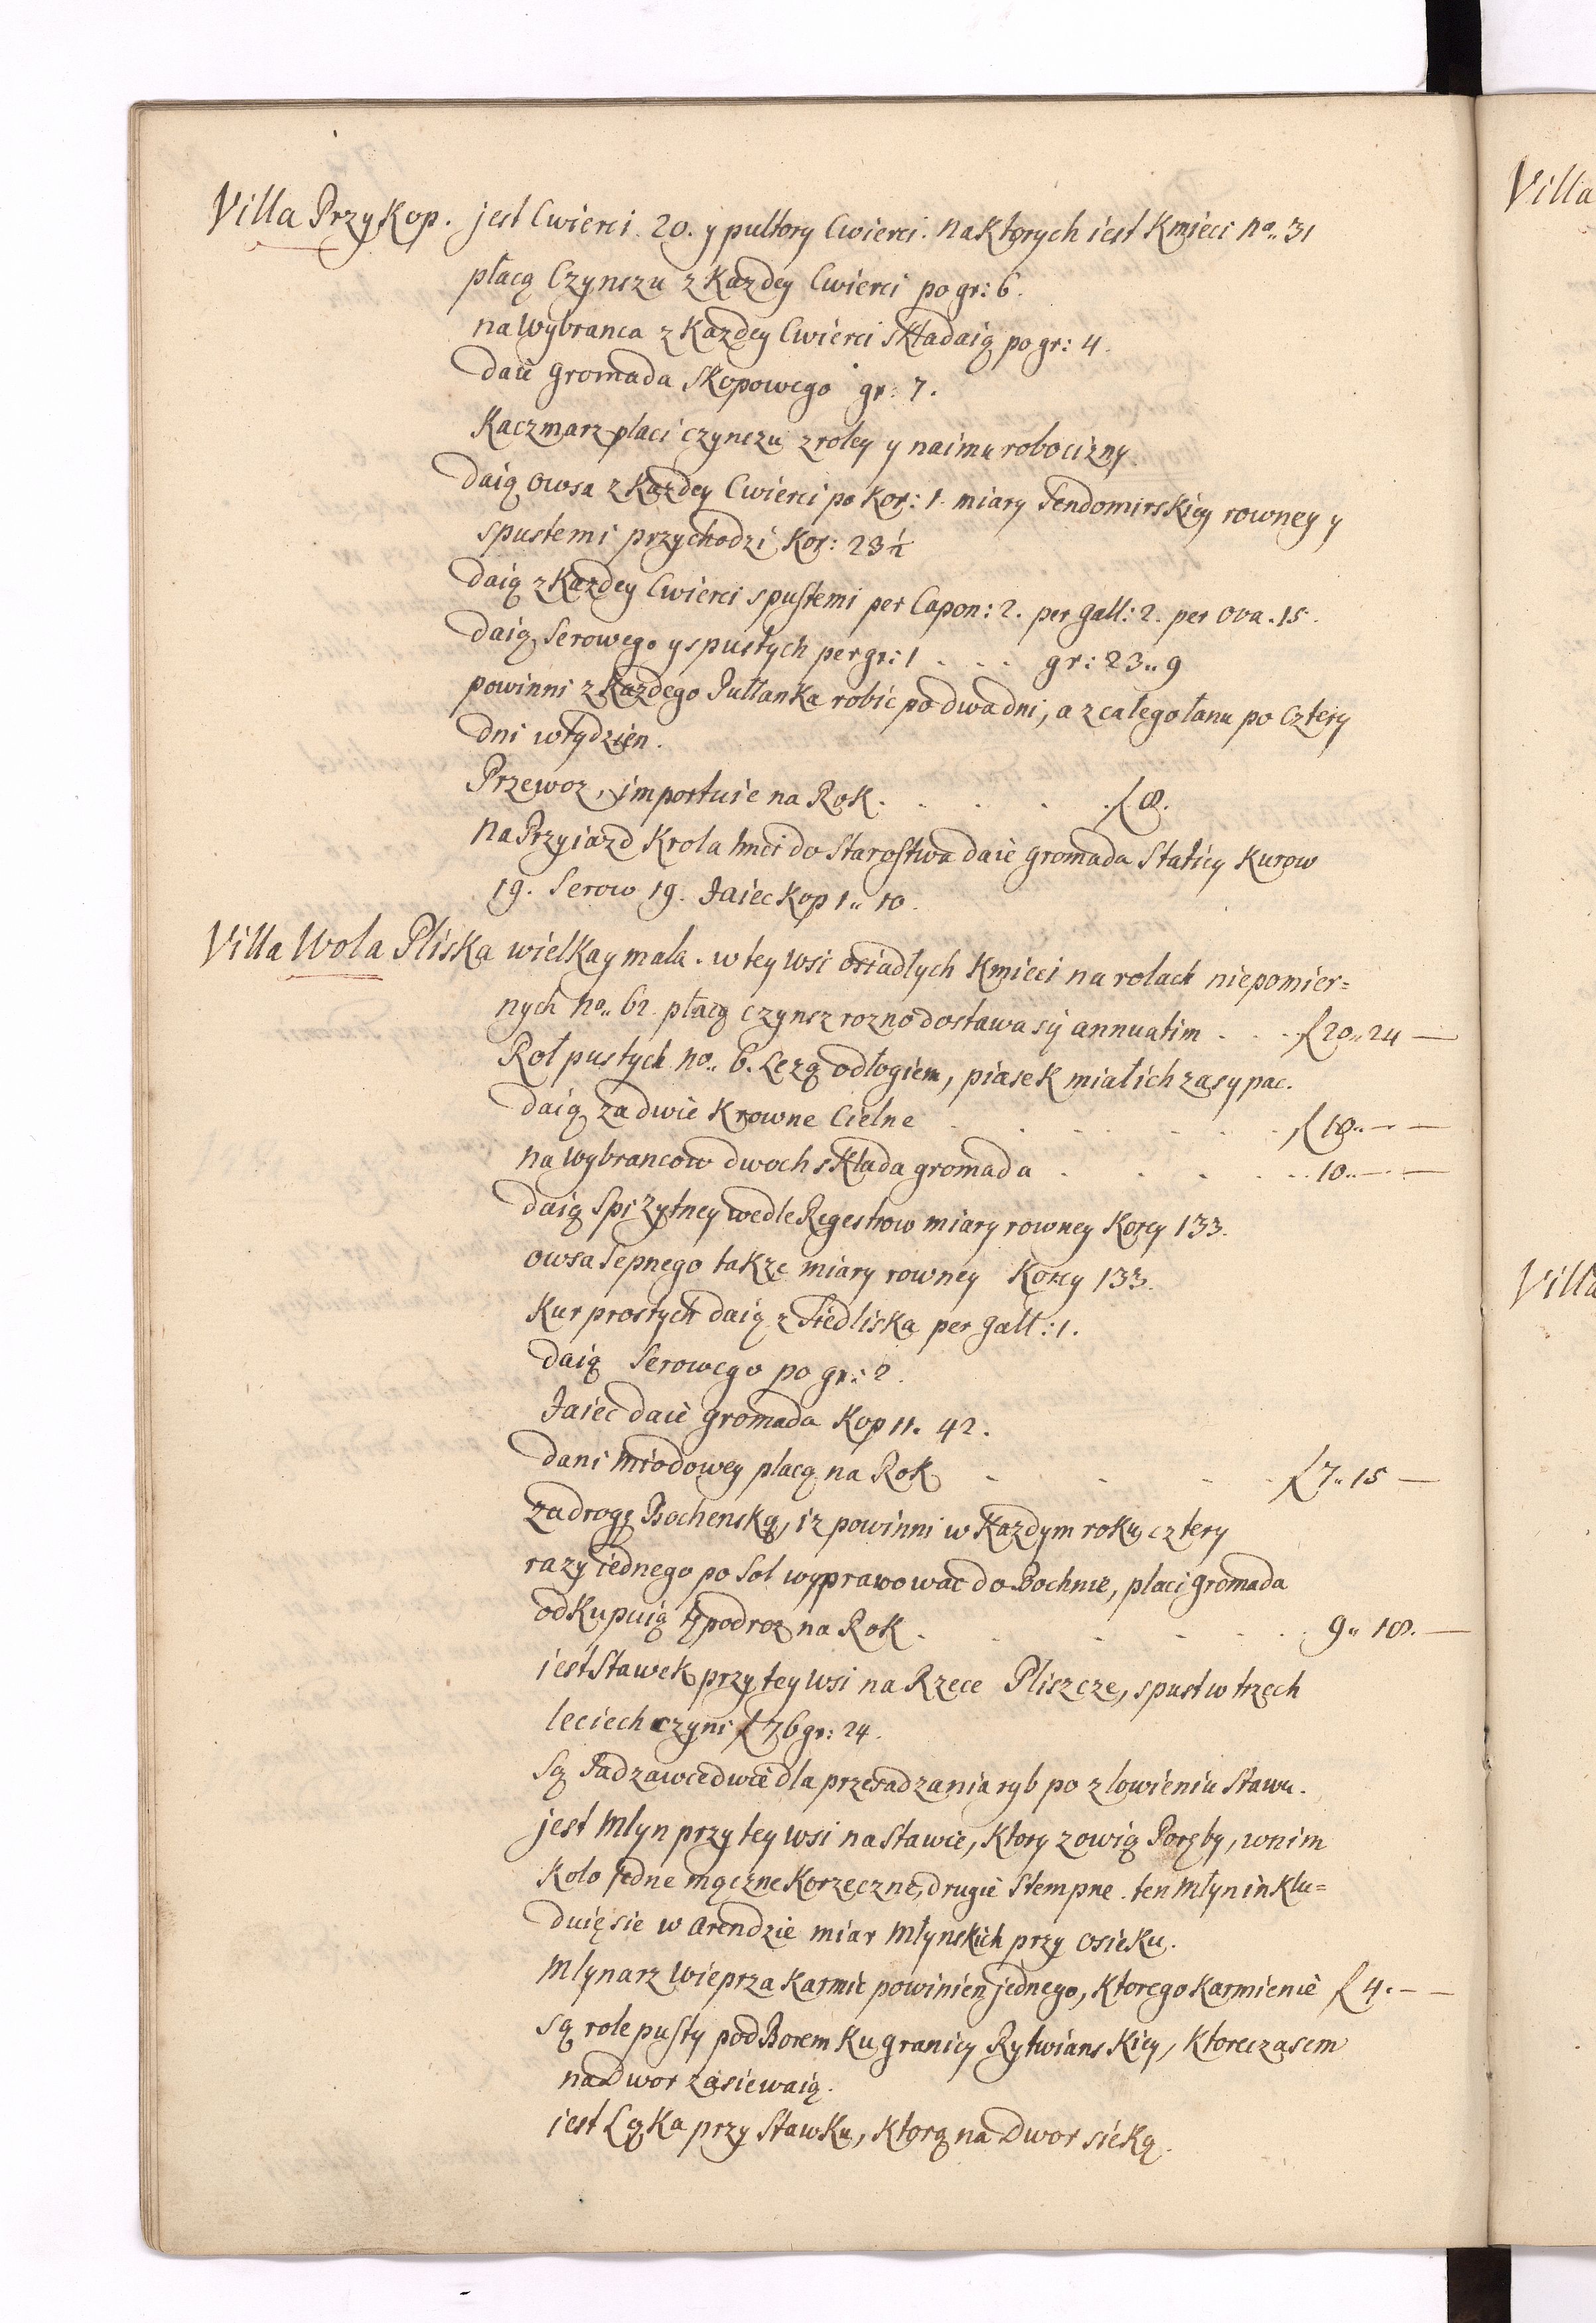 Villa PrzyKop. jest Cwierci. 20. y pultory Cwierci. na Ktorych iest Kmieci no.. 31
płacą Czynszu z Kazdey Cwierci po gr: 6.
na Wybranca z Kazdey Cwierci składaią po gr: 4.
daie gromada Skopowego gr: 7.
Kaczmarz placi czynszu z roley y naimu robocizny.
daią Owsa z Kazdey Cwierci po Kor: 1. miary Sendomirskiey rowney y
spustemi przychodzi Kor: 23½
daią z Kazdey Cwierci spustemi per Capon: 2. per gall: 2. per Ova. 15.
daią Serowego y spustych per gr: 1 . . . . gr: 23.. 9
powinni z Kazdego Pułłanka robic po dwa dni, a z całego łanu po Cztery
dni w tydzien.
Przewoz, importuie na Rok. . . . . f 8.
na Przyiazd Krola Jmci do Starostwa daie gromada Staticy Kurow
19. Serow 19. Jaiec Kop 1.. 10.
Villa Wola Pliska wielka y mala. w tey Wsi osiadłych Kmieci na rolach niepomier=
nych no.. 62. płacą czynsz rozno dostawa się annuatim . . . f 20.. 24 —
Rol pustych no.. 6. Lezą odłogiem, piasek miał ich zasypac.
daią za dwie Krowne Cielne . . . . . . f 18.. — —
na Wybrancow dwoch składa gromada . . . . . 10.. — —
daią Spi Zytney wedle Regestrow miary rowney Korcy 133.
owsa Sepnego takze miary rowney Korcy 133.
Kur prostych daią z Siedliska per gall: 1.
daią Serowego po gr: 2.
Jaiec daie gromada Kop 11. 42.
dani Miodowey placą na Rok . . . . f 7.. 15 —
za drogę Bochenską, iz powinni w Kazdym roku cztery
razy iednego po Sol wyprawowac do Bochnie, placi gromada
odkupuią tę podroz na Rok . . . . . . 9.. 18. —
iest Stawek przy tey Wsi na Rzece Pliszcze, spust w trzech
leciech czyni f 76 gr: 24.
Są Sadzawce dwie dla przesadzania ryb po złowieniu Stawu.
jest Młyn przy tey Wsi na Stawie, Ktory zowią Poręby, w nim
Kolo jedne mączne Korzeczne, drugie Stempne. ten Młyn inklu=
duię sie w Arendzie miar Młynskich przy Osieku.
Mlynarz Wieprza Karmic powinien jednego, Ktorego Karmienie f 4. — —
są role pusty pod Borem Ku granicy Rytwianskiey, Ktore czasem
na Dwor zasiewaią.
iest Ląka przy Stawku, Ktorą na Dwor sieką.
Villa
Villa